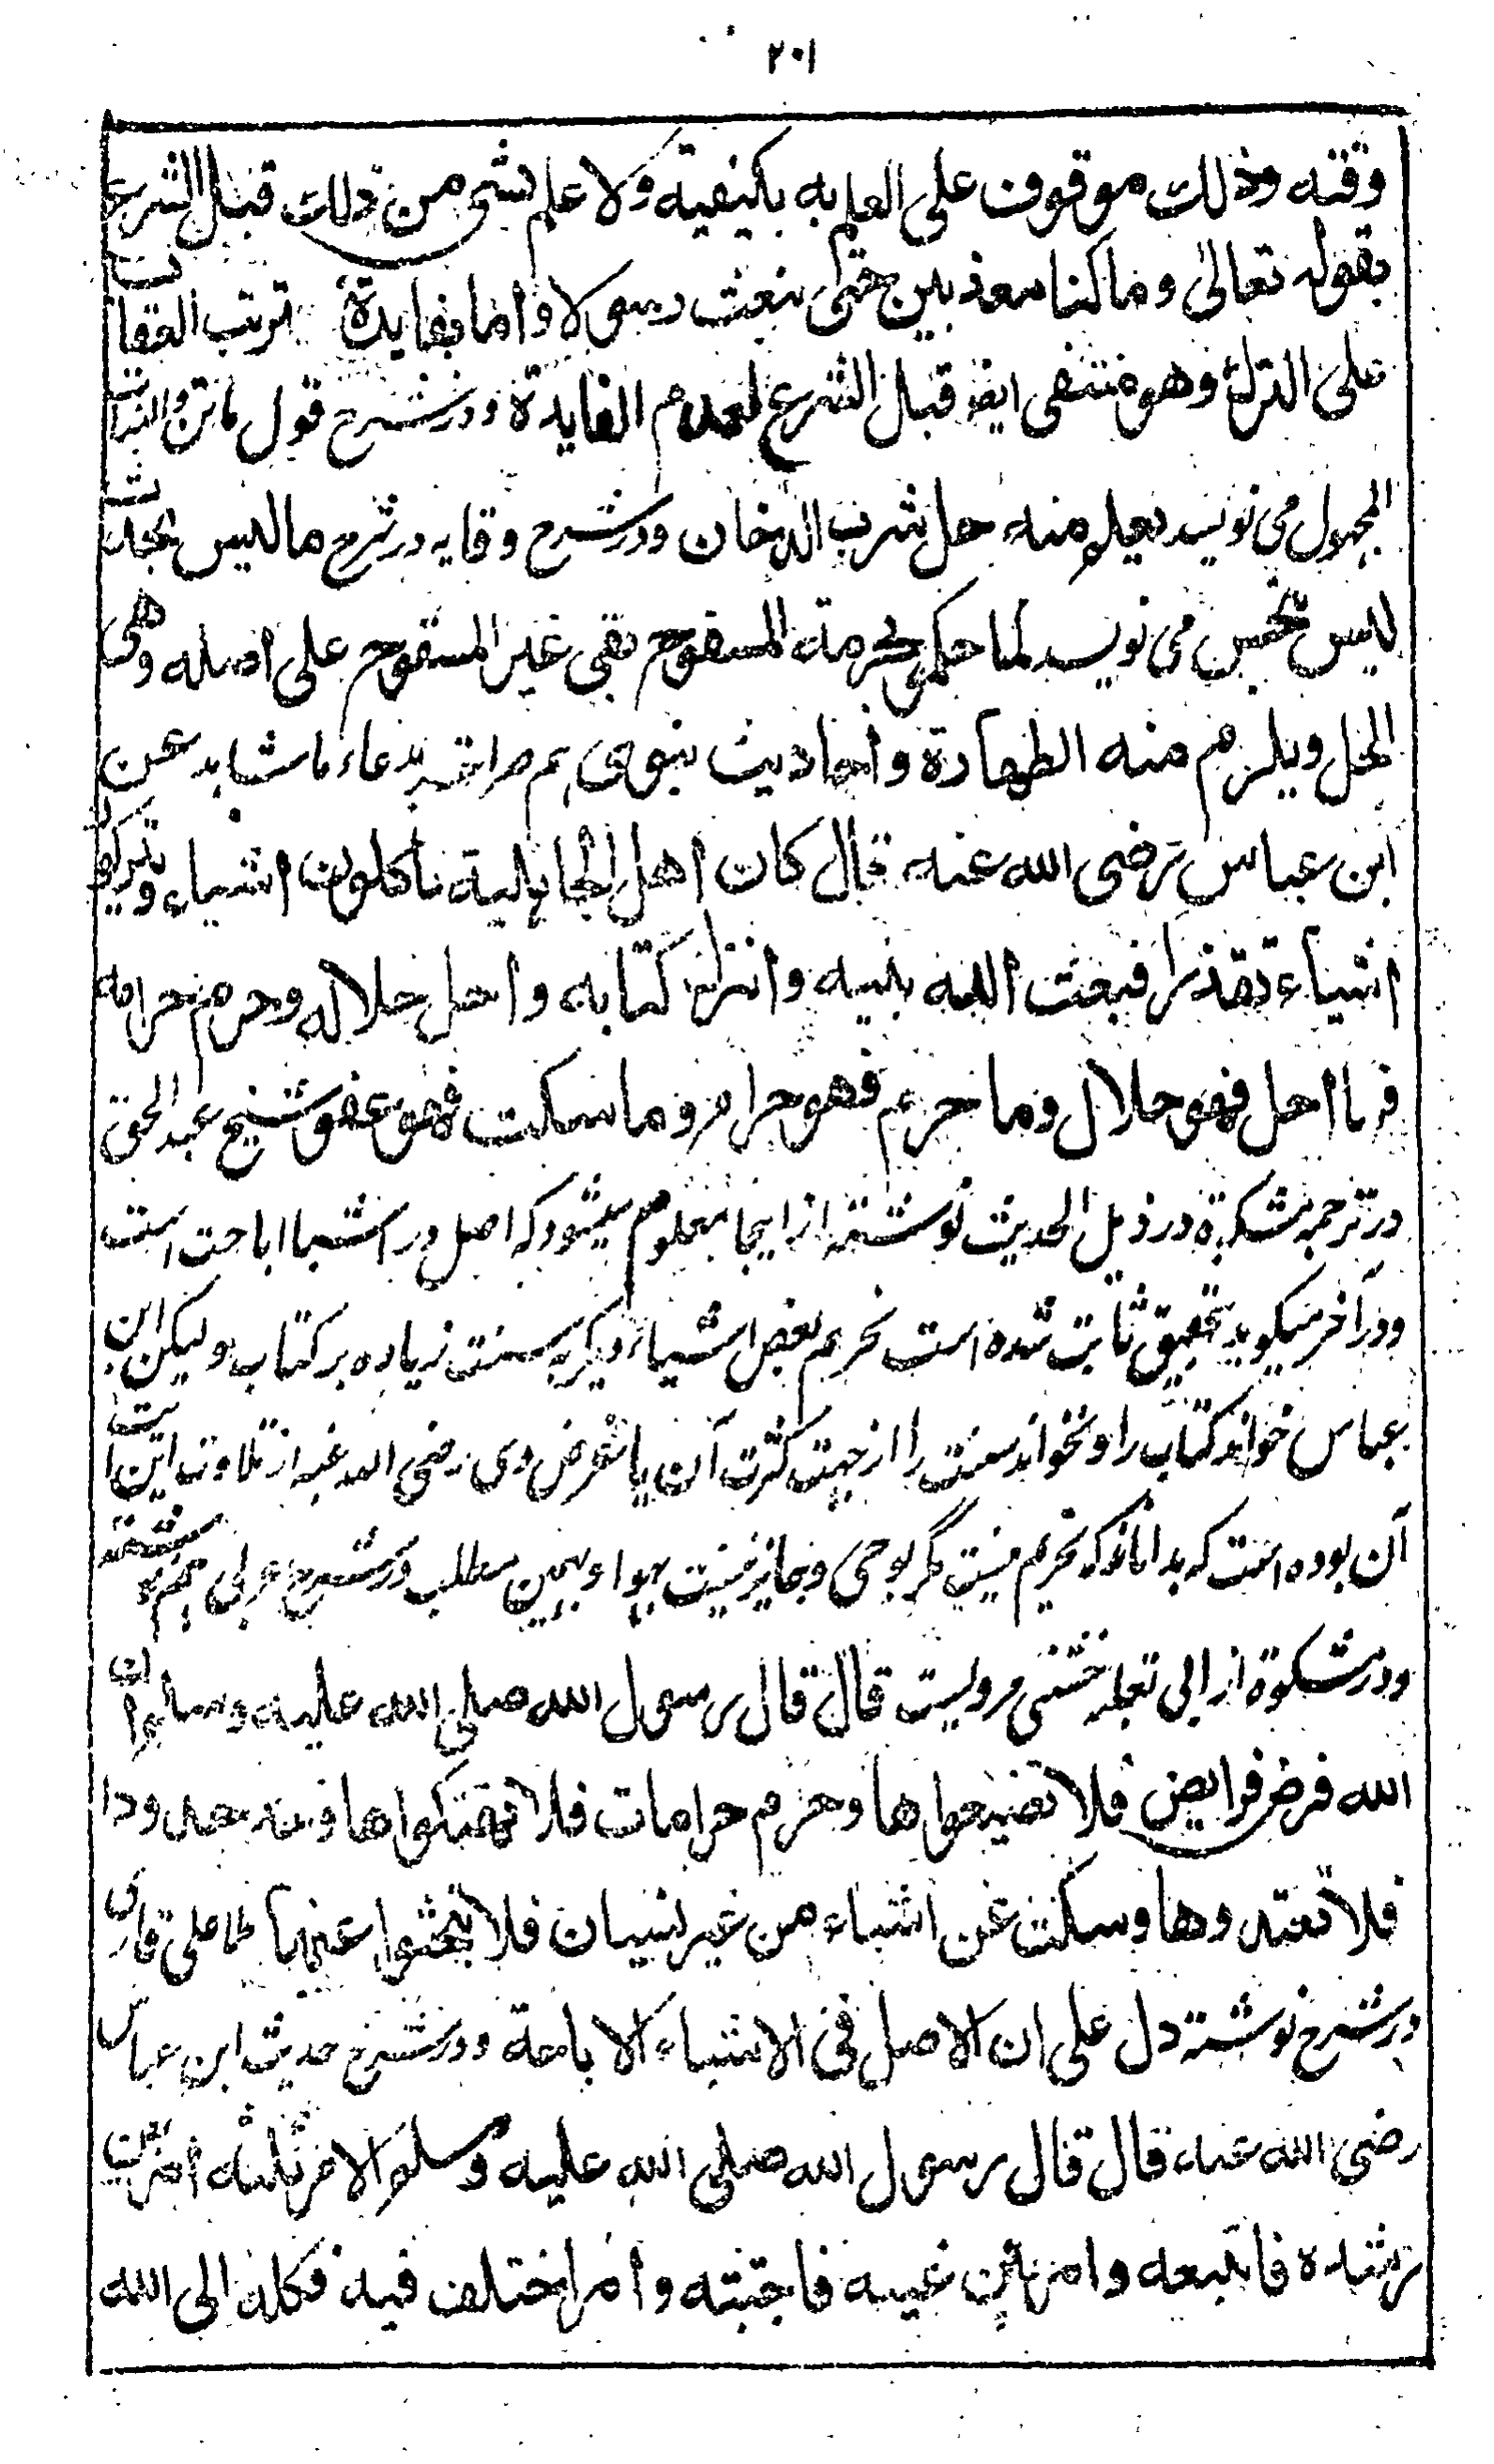 ٢٠١
وقته وذلك موقوف على العلم به بكيفية ولا علم بشی من ذلك قبل الشرع
بقوله تعالیٰ وما كنا معذبین حتی نبعث رسولا واما بفايدة ترتب العقاب
علی الترك وهو منتفی ایضا قبل الشرع لعدم الفايدة ودر شرح قول ماتن والنبات
المجهول می نویسد یعلم منه حل شرب الدخان ودر شرح وقایه در شرح مالیس بحدث
لیس بنجس می نویسد لما حكم بحرمة المسفوح بقی غیر المسفوح علی اصله وهی
الحل ویلزم منه الطهارة واحادیث نبوی هم صراحتہ بدعاء ما شاهد عن
ابن عباس رضی الله عنه قال كان اهل الجاهلیة یأكلون اشیاء ویتركون
اشیاء تقذرا فبعث الله نبیه وانزل كتابه واحل حلاله وحرم حرامه
فما احل فهو حلال وما حرم فهو حرام وما سكت فهو عفو شیخ عبد الحق
در ترجمه مشكوة در ذیل الحدیث نوشته از اینجا معلوم میشود كه اصل در اشیا اباحت است
ودر آخر میگوید بتحقیق ثابت شده است تحریم بعض اشیاء دیگر به سنت زیاده بر كتاب ولیكن ابن
عباس خواند كتاب را ونخواند سنت را از جهت كثرت آن یا غرض وی رضی الله عنه از تلاوت این آیت
آن بوده است كه بدانند كه تحریم نیست مگر بوحی وجایز نیست بهوا وبهمین مطلب در شرح عربی هم نوشته
ودر مشكوة از ابی ثعلبه خشنی مرویست قال قال رسول الله صلی الله علیه وسلم ان
الله فرض فرایض فلا تضیعوها وحرم حرامات فلا تنتهكوها وحد حدودا
فلا تعتدوها وسكت عن اشیاء من غیر نسیان فلا تبحثوا عنها ملا علی قاری
در شرح نوشته دل علی ان الاصل فی الاشیاء الاباحة ودر شرح حدیث ابن عباس
رضی الله عنه قال قال رسول الله صلی الله علیه وسلم الامر ثلثه امر بین
رشده فاتبعه وامر بین غیه فاجتنبه وامر اختلف فیه فكله الی الله